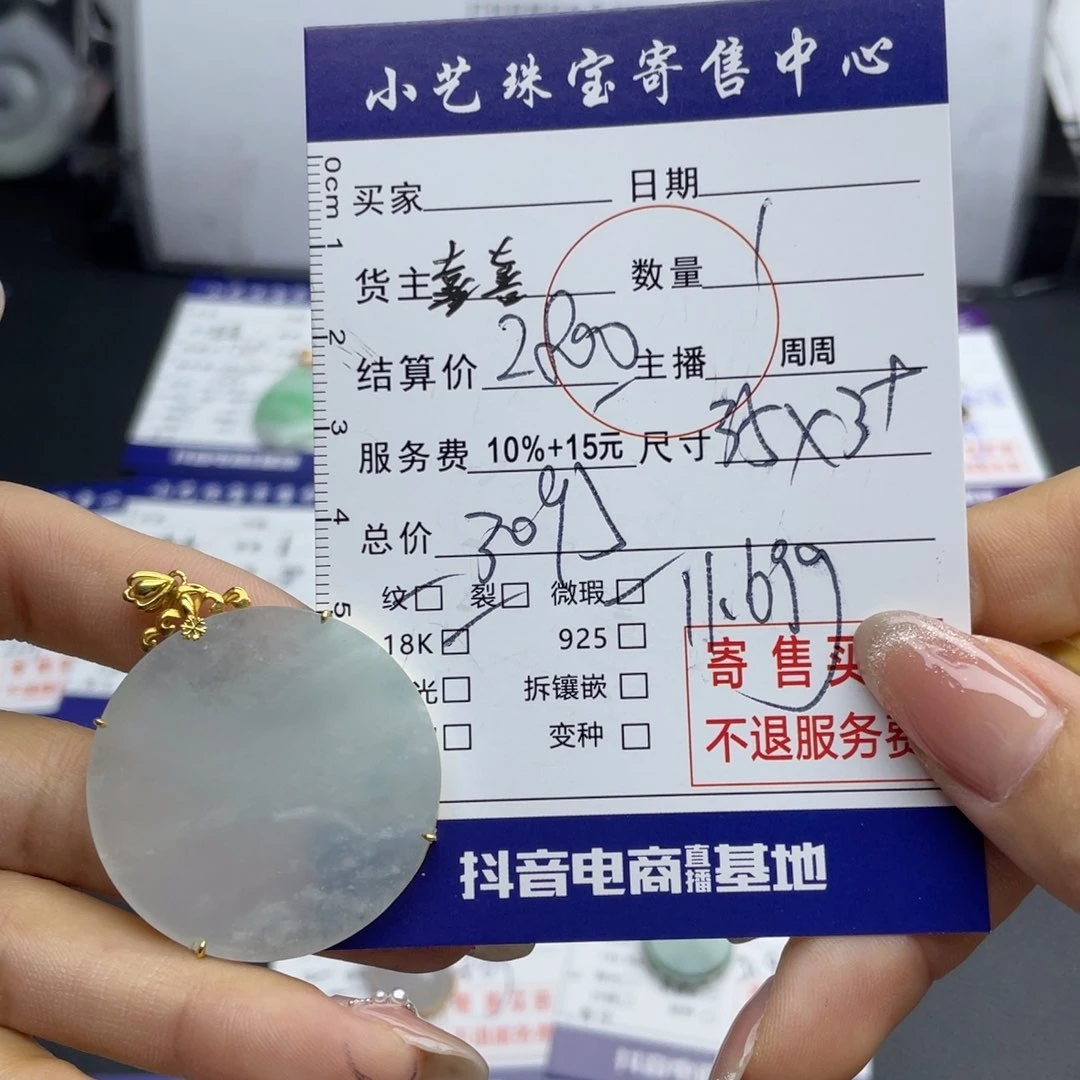 小艺珠宝寄售中心
0cm
1
2
3
4
5
买家 日期
货主 喜喜 数量 1
结算价 2800 主播 周周
服务费 10%+15元 尺寸 35X3
总价 3095
纹 裂 微瑕
11.699
18K 925
光 拆镶嵌
变种
寄售买
不退服务费
抖音电商直播基地